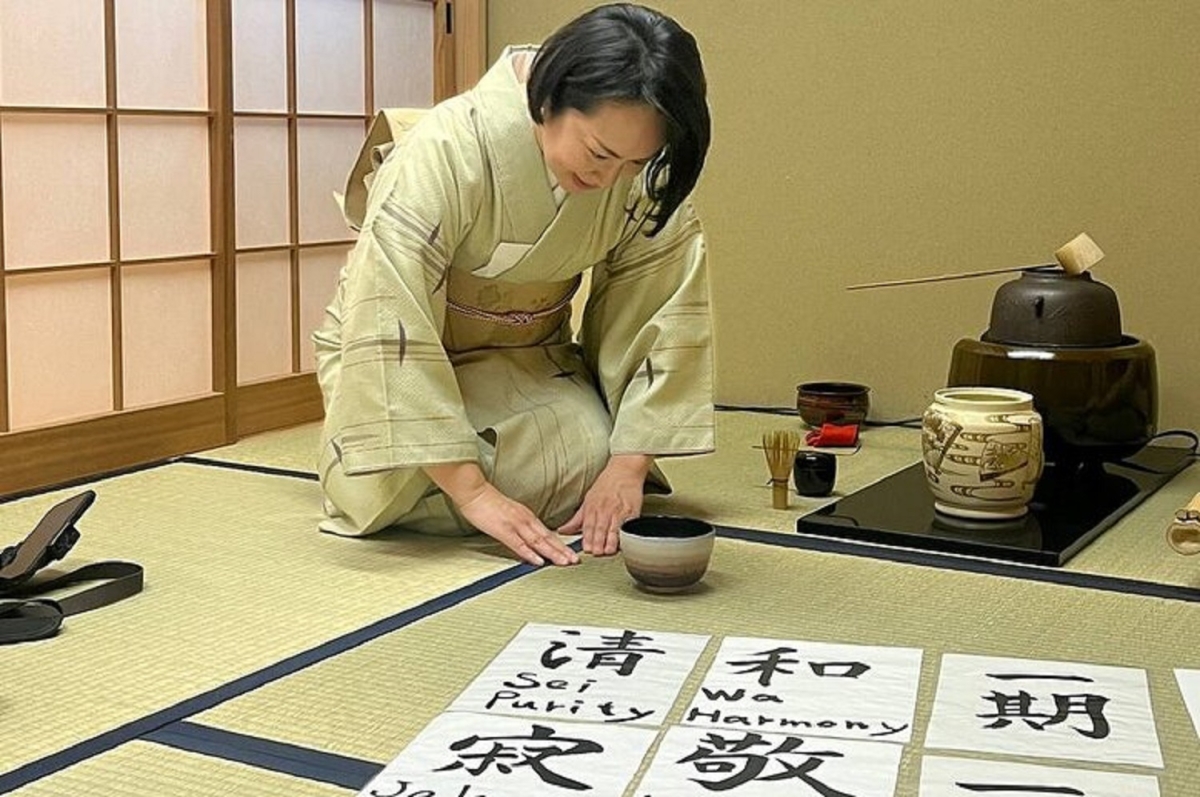 清
Sei
Purity
和
Wa
Harmony
一
期
寂
敬
一